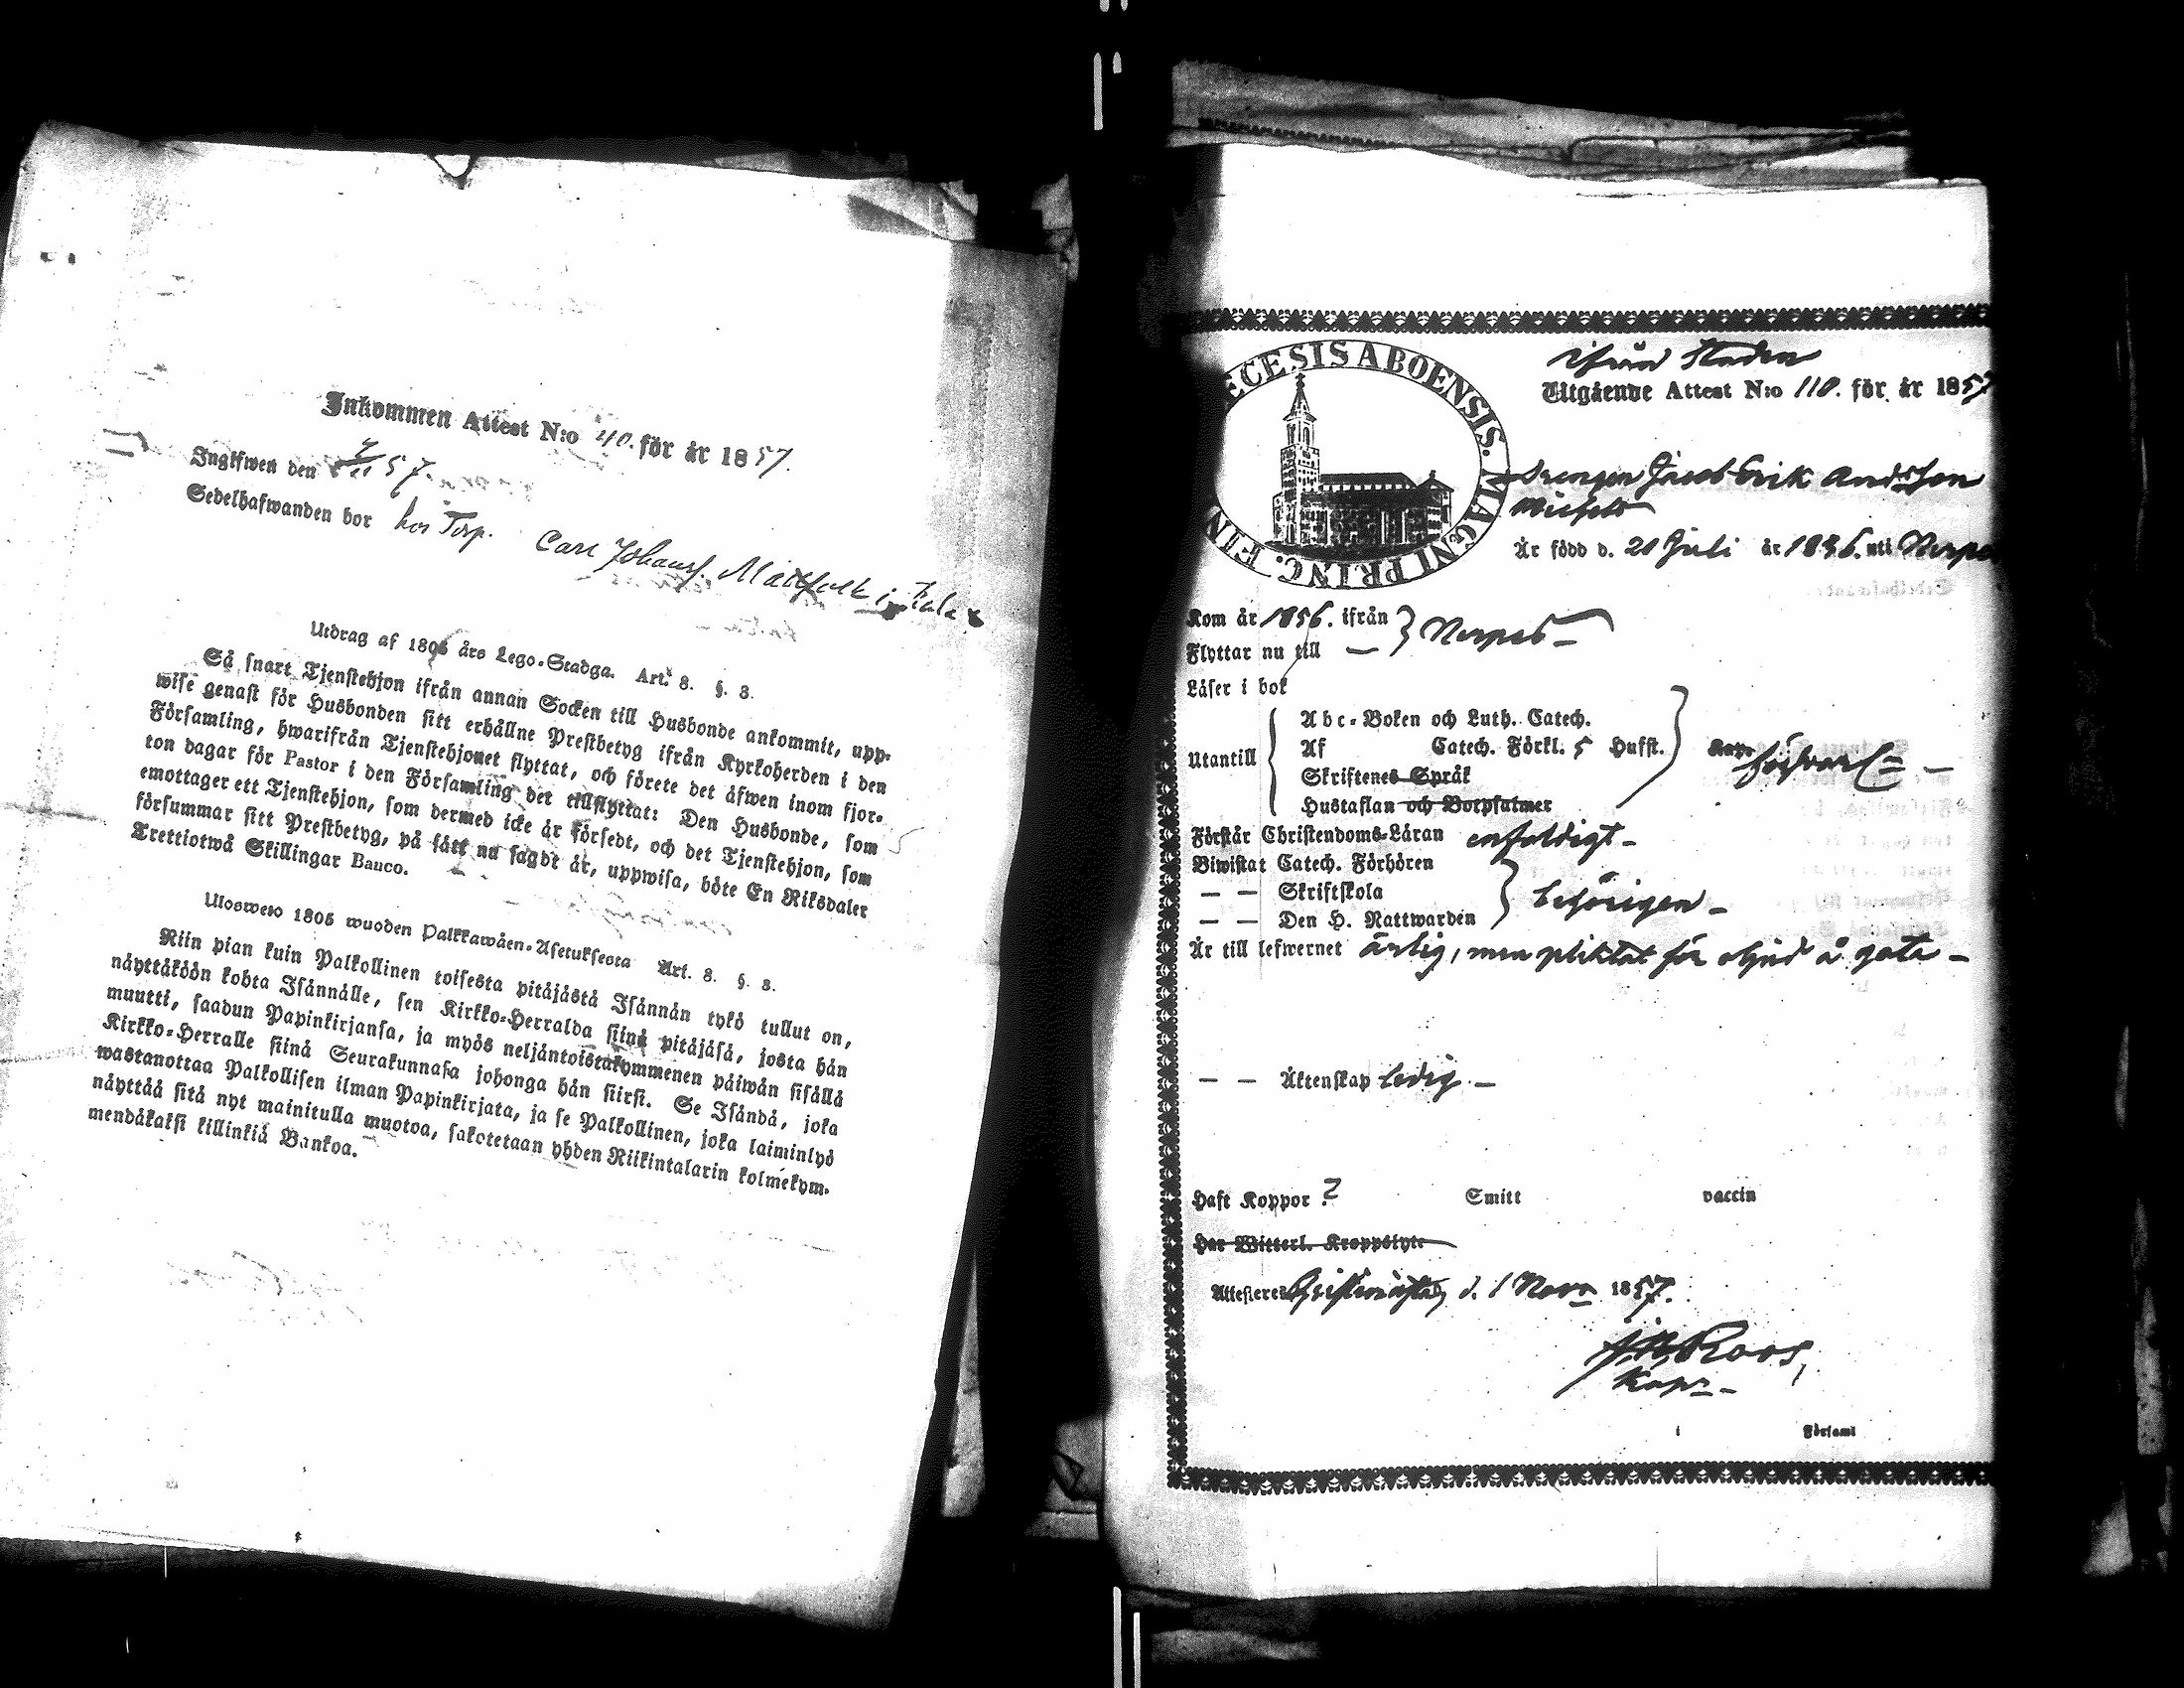 Inkommen Attest N:o 40. för år 1857.
Ingifwen den 57.
Sedelhafwanden bor hos Torp. Carl Johanss. Mattfolk i
Utdrag af 1805 års Lego-Stadga. Art. 8. §. 3.
Så snart Tjenstehjon ifrån annan Socken till Husbonde ankommit, upp-
wise genast för Husbonden sitt erhållne Prestbetyg ifrån Kyrkoherden i den
Församling, hwarifrån Tjenstehjonet flyttat, och förete det äfwen inom fjor-
ton dagar för Pastor i den Församling det tillflyttat: Den Husbonde, som
emottager ett Tjenstehjon, som dermed icke är försedt, och det Tjenstehjon, som
försummar sitt Prestbetyg, på sätt nu sagdt är, uppwisa, böte En Riksdaler
Trettiotwå Skillingar Banco.
Ulosweto 1805 wuoden Palkkawäen-Asetuksesta Art. 8. §. 3.
Niin pian kuin Palkollinen toisesta pitäjästä Isännän tykö tullut on,
näyttäköön kohta Isännälle, sen Kirkko-Herralda siinä pitäjäsä, josta hän
muutti, saadun Papinkirjansa, ja myös neljäntoistakymmenen päiwän sisällä
Kirkko-Herralle siinä Seurakunnasa johonga hän siirsi. Se Isändä, joka
wastanottaa Palkollisen ilman Papinkirjata, ja se Palkollinen, joka laiminlyö
näyttää sitä nyt mainitulla muotoa, sakotetaan yhden Riikintalarin kolmekym-
mendäkaksi killinkiä Bankoa.
ifrån Staden
Utgående Attest N:o 110. för år 1857
ECESIS ABOENSIS. MAGNI PRINC. FIN
Drengen Jacob Erik Andersson
Är född d. 20 Juli år 1836. uti Nerpes
Kom år 1856. ifrån } Nerpes —
Flyttar nu till —
Läser i bok
Utantill
Abc-Boken och Luth. Catech.
Af Catech. Förkl. 5 Hufst.
Skriftenes Språk
Hustaflan och Botpsalmer
Förstår Christendoms-Läran enfaldigt —
Biwistat Catech. Förhören
— — Skriftskola } behörigen —
— — Den H. Nattwarden
Är till lefwernet ärlig, men pliktat för oljud å gata —
— — Äktenskap ledig —
Haft Koppor ? Smitt vaccin
Har Witterl. Kroppslyte
Attesteres Christinestad, d. 1 Novr 1857.
Roos,
Kapn.
i Församl